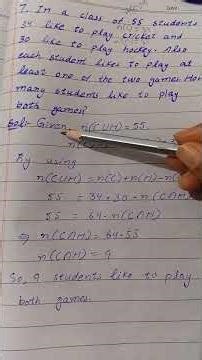 7. In a class of 55 students
34 like to play cricket and
30 like to play hockey. Also
each student likes to play at
least one of the two games. How
many students like to play
both games?
Sol:- Given, n(CUH) = 55
By using
n(CUH) = n(C) + n(H) - n(
55 = 34 + 30 - n(C∩H)
55 = 64 - n(C∩H)
⇒ n(C∩H) = 64-55
n(C∩H) = 9
So, 9 students like to play
both games.